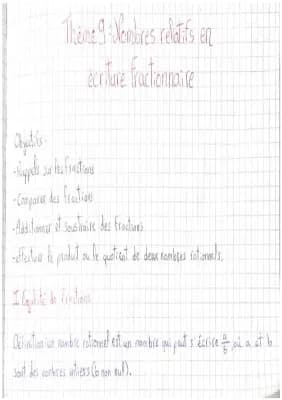 Thème 9 : Nombres relatifs en
écriture fractionnaire
Objectifs :
- Rappels sur les fractions
- Comparer des fractions
- Additionner et soustraire des fractions
- effectuer le produit ou le quotient de deux nombres rationnels.
I Egalité de fractions
Définition: un nombre rationnel est un nombre qui peut s'écrire a/b où a et b
sont des nombres entiers (b non nul).